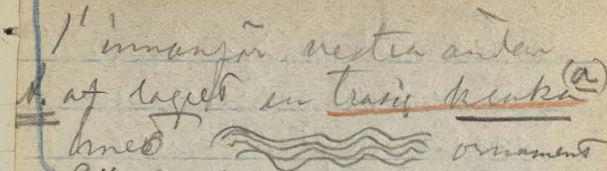 1' innanför vestra ändan
af lagret en trasig kruka (a)
med ornament